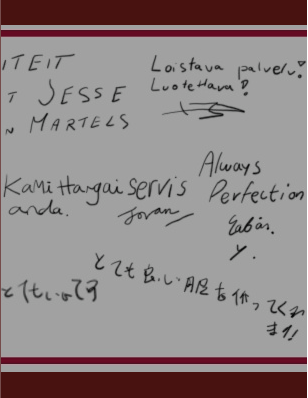 ITEIT
T JESSE
N MARTELS
Loistava palvelu!
Luotettava!
Kami Hargai servis
anda.
Jovan
Always
Perfection
Y.
とても良いです
とても良い服を作ってくれ
ます!